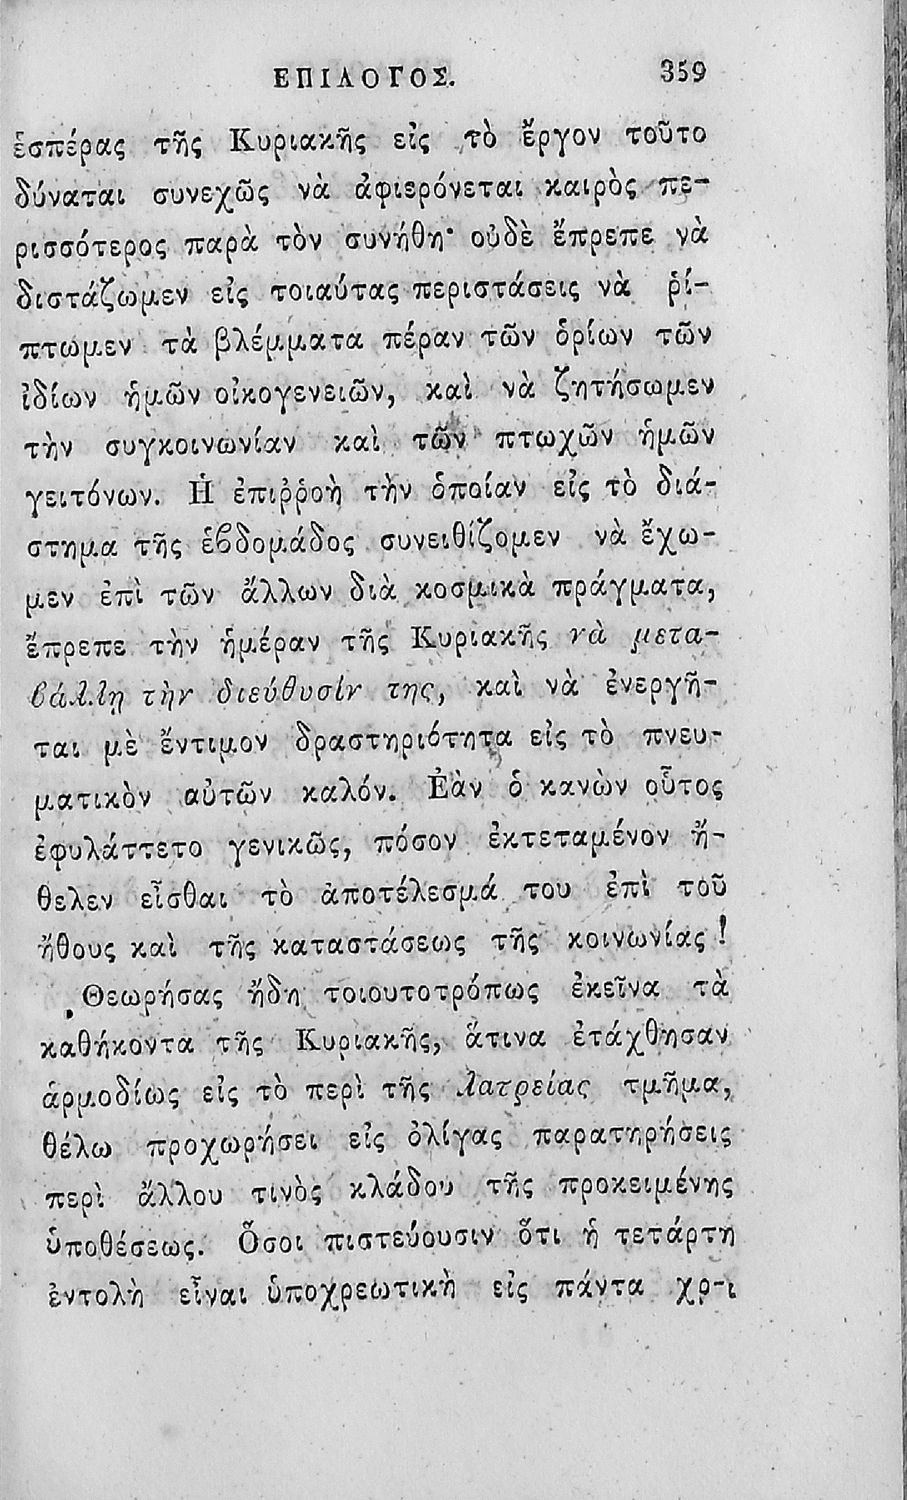 ΕΠΙΛΟΓΟΣ. 359
ἑσπέρας τῆς Κυριακῆς εἰς τὸ ἔργον τοῦτο
δύναται συνεχῶς νὰ ἀφιερόνεται καιρὸς πε-
ρισσότερος παρὰ τὸν συνήθη· οὐδὲ ἔπρεπε νὰ
διστάζωμεν εἰς τοιαύτας περιστάσεις νὰ ῥί-
πτωμεν τὰ βλέμματα πέραν τῶν ὁρίων τῶν
ἰδίων ἡμῶν οἰκογενειῶν, καὶ νὰ ζητήσωμεν
τὴν συγκοινωνίαν καὶ τῶν πτωχῶν ἡμῶν
γειτόνων. Ἡ ἐπιῤῥοὴ τὴν ὁποίαν εἰς τὸ διά-
στημα τῆς ἑβδομάδος συνειθίζομεν νὰ ἔχω-
μεν ἐπὶ τῶν ἄλλων διὰ κοσμικὰ πράγματα,
ἔπρεπε τὴν ἡμέραν τῆς Κυριακῆς νὰ μετα-
βάλλῃ τὴν διεύθυσίν της, καὶ νὰ ἐνεργῆ-
ται μὲ ἔντιμον δραστηριότητα εἰς τὸ πνευ-
ματικὸν αὐτῶν καλόν. Ἐὰν ὁ κανὼν οὗτος
ἐφυλάττετο γενικῶς, πόσον ἐκτεταμένον ἤ-
θελεν εἶσθαι τὸ ἀποτέλεσμά του ἐπὶ τοῦ
ἤθους καὶ τῆς καταστάσεως τῆς κοινωνίας!
Θεωρήσας ἤδη τοιουτοτρόπως ἐκεῖνα τὰ
καθήκοντα τῆς Κυριακῆς, ἅτινα ἐτάχθησαν
ἁρμοδίως εἰς τὸ περὶ τῆς λατρείας τμῆμα,
θέλω προχωρήσει εἰς ὀλίγας παρατηρήσεις
περὶ ἄλλου τινὸς κλάδου τῆς προκειμένης
ὑποθέσεως. Ὅσοι πιστεύουσιν ὅτι ἡ τετάρτη
ἐντολὴ εἶναι ὑποχρεωτικὴ εἰς πάντα χρ-ι